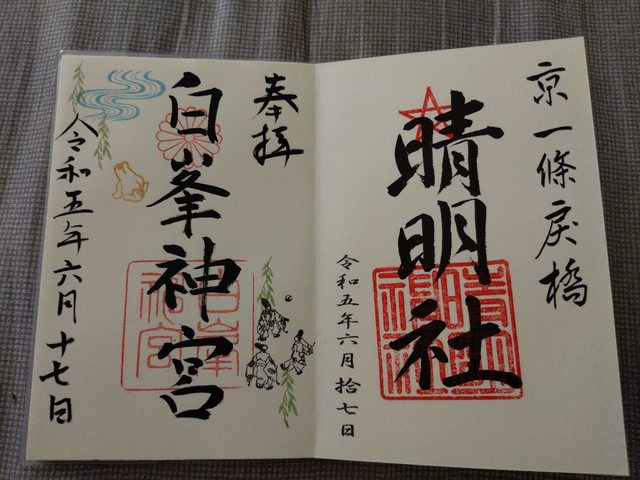 京一條戻橋
晴明社
令和五年六月拾七日
奉拝
白峯神宮
令和五年六月十七日